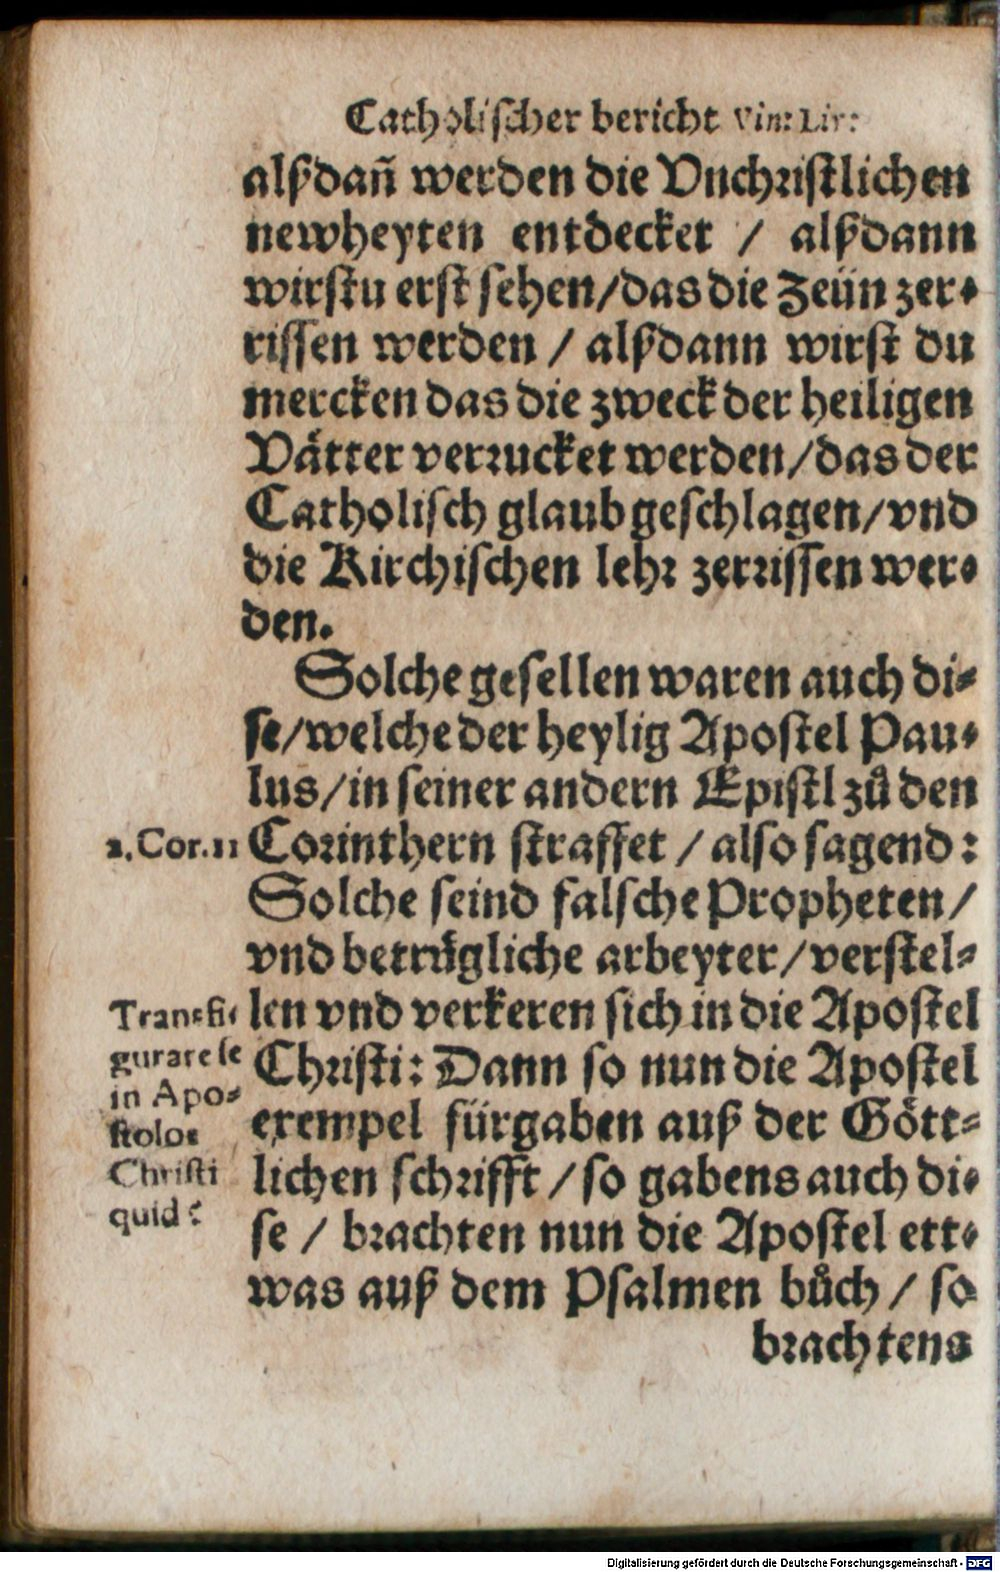 Catholischer bericht Vin: Lir:
alßdañ werden die Vnchristlichen
newheyten entdecket / alßdann
wirstu erst sehen/das die Zeün zer-
rissen werden / alßdann wirst du
mercken das die zweck der heiligen
Vätter verrucket werden/das der
Catholisch glaub geschlagen/vnd
die Kirchischen lehr zerrissen wer-
den.
Solche gesellen waren auch di-
se/welche der heylig Apostel Pau-
lus/in seiner andern Epistl zů den
2.Cor.11 Corinthern straffet / also sagend:
Solche seind falsche Propheten/
vnd betrügliche arbeyter/verstel-
len vnd verkeren sich in die Apostel
Christi: Dann so nun die Apostel
exempel fürgaben auß der Gött-
lichen schrifft/so gabens auch di-
se / brachten nun die Apostel ett-
was auß dem Psalmen bůch / so
brachtens
Transfi-
gurare se
in Apo-
stolos
Christi
quid?
Digitalisierung gefördert durch die Deutsche Forschungsgemeinschaft - DFG